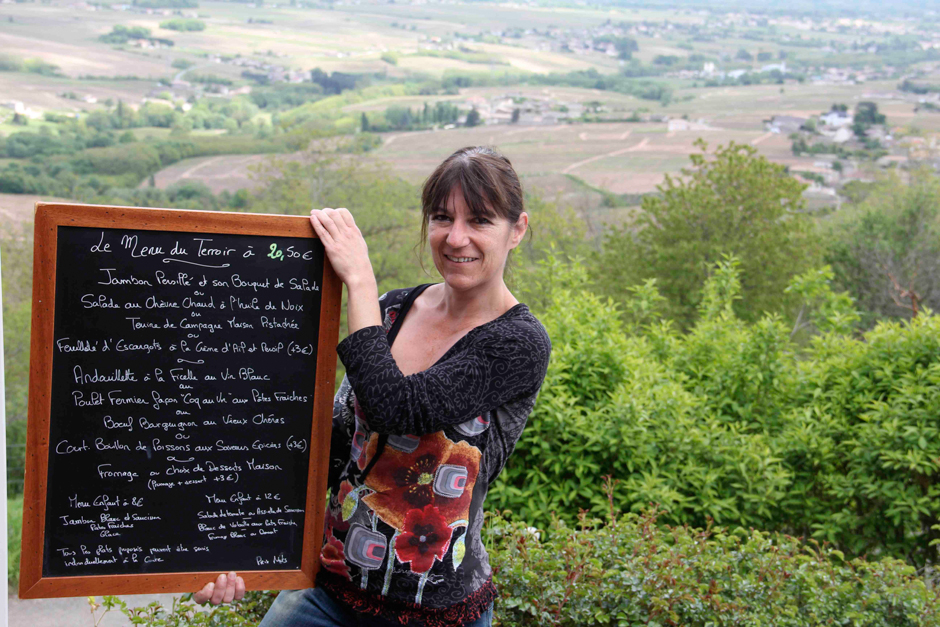 Le Menu du Terroir à 20,50€
Jambon Persillé et son Bouquet de Salade
ou
Salade au Chèvre Chaud à l'huile de Noix
ou
Terrine de Campagne Maison Pistachée
ou
Feuilleté d'Escargots à la Crème d'Ail et Persil (+3€)
Andouillette à la Ficelle au Vin Blanc
ou
Poulet Fermier façon "Coq au Vin" aux Pâtes Fraîches
ou
Boeuf Bourguignon au Vieux Chênas
ou
Court Bouillon de Poissons aux Saveurs Epicées (+3€)
Fromage ou choix de Desserts Maison
(Fromage + dessert +3€)
Menu Enfant à 8€
Jambon Blanc et Saucisson
Pâtes Fraîches
Glace
Menu Enfant à 12€
Salade de tomate ou Assiette de Saucisson
Blanc de Volaille aux Pâtes Fraîches
Fromage Blanc ou Dessert
Tous les plats proposés peuvent être servis
individuellement à la Carte
Prix Nets